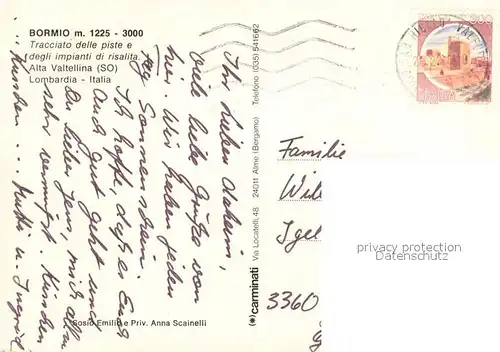 BORMIO m. 1225 - 3000
Tracciato delle piste e
degli impianti di risalita.
Alta Valtellina (SO)
Lombardia - Italia
Ihr Lieben daheim,
viele liebe Grüße von
hier. Wir haben jeden
Tag Sonnenschein.
Ich hoffe daß es Euch
auch gut geht und
Du lieber Jens, mich
sehr vermißt. Küsschen
Küsschen ... Mutti u. Ingrid
Sosio Emilio e Priv. Anna Scainelli
(*) carminati Via Locatelli, 48 24011 Alme (Bergamo) Telefono (035) 541662
Familie
3360
privacy protection
Datenschutz